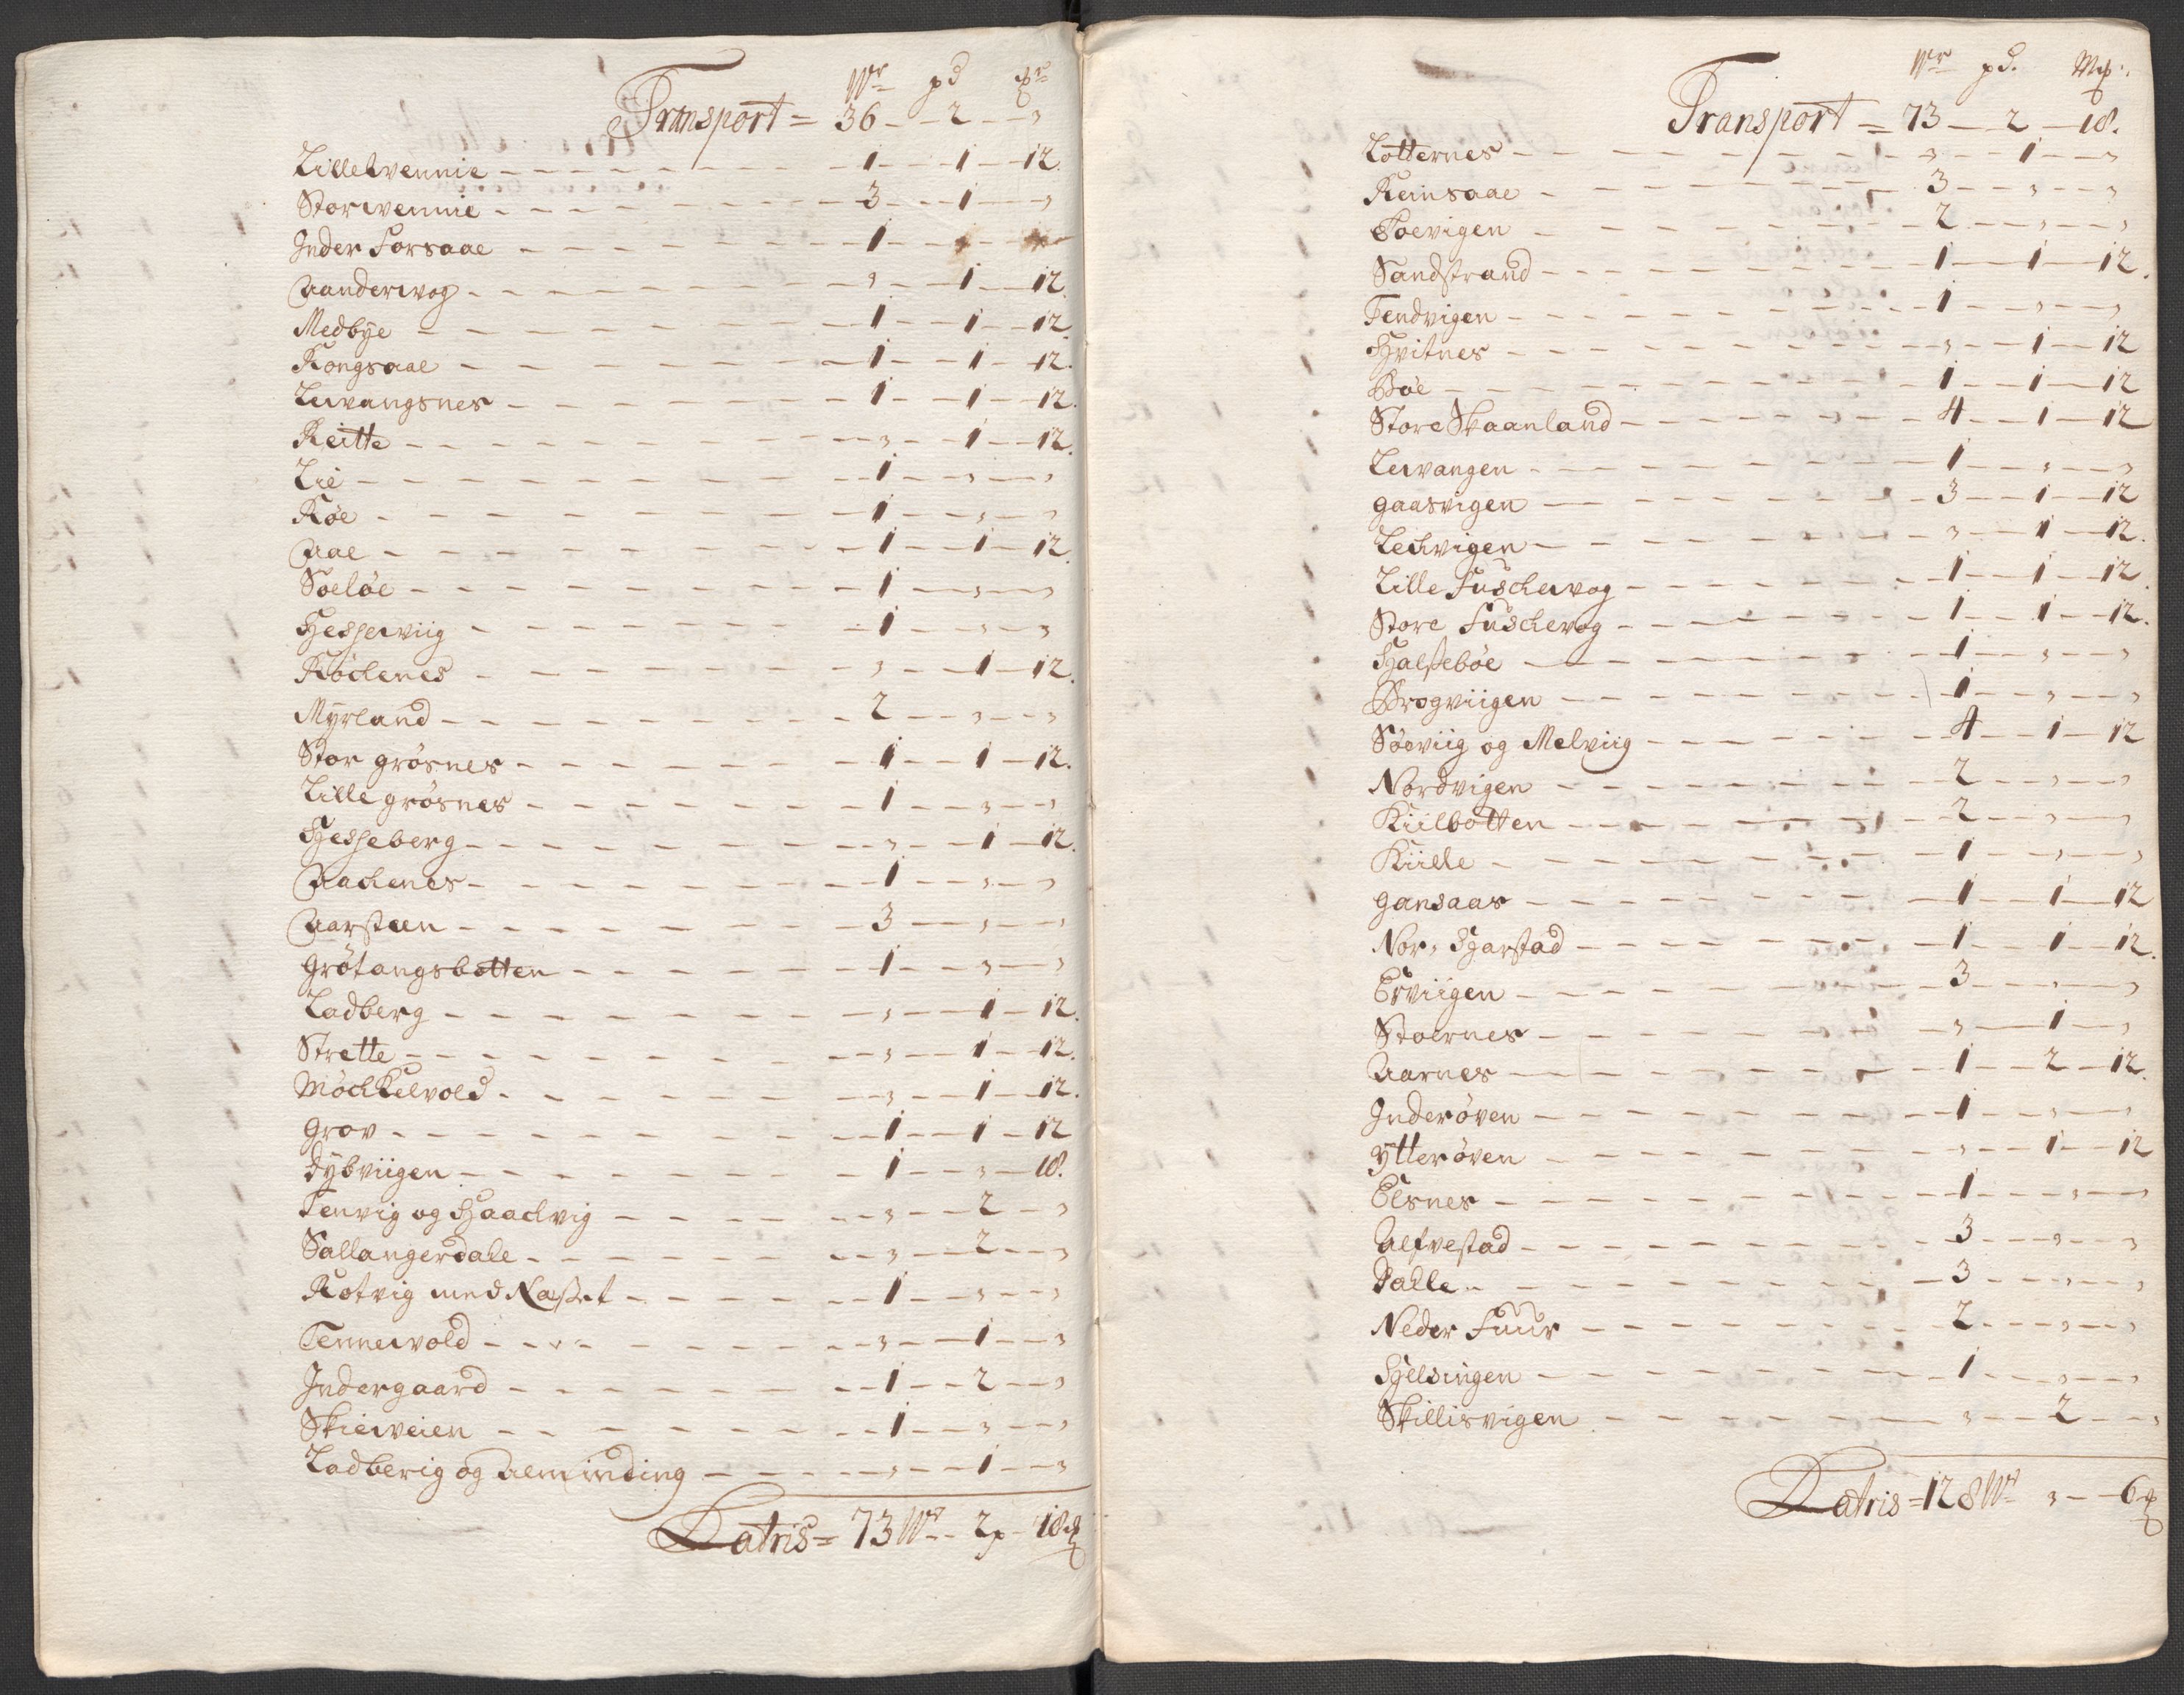 Wr pd
Transport = 36 - 2 - "
Lillelvennie - 1 - 1 - 12.
Storevennie - 3 - 1 - "
Inder Forsaae - 1
Aanderwog - " - 1 - 12.
Medbÿe - 1 - 1 - 12
Kongsaae - 1 - 1 - 12.
Levangsnes - 1 - 1 - 12.
Reitte - " - 1 - 12.
Lie - 1 - " - "
Røe - 1 - " - "
Aae - 1 - 1 - 12
Soeløe - 1 - " - "
Hesseviig - 1 - " - "
Røckenes - " - 1 - 12.
Myrland - 2 - " - "
Stor grøsnes - 1 - 1 - 12.
Lille grøsnes - 1 - " - "
Hesseberg - " - 1 - 12.
Aackenes - 1 - " - "
Aarsteen - 3 - " - "
Grøtangsbotten - 1 - " - "
Ladberg - " - 1 - 12.
Strette - " - 1 - 12.
Møckkelvold - " - 1 - 12.
Grov - 1 - 1 - 12
Dÿbviigen - 1 - " - 18.
Tenvig og Haackvig - " - 2 - "
Sallangerdale - " - 2 - "
Rotvig med Næsset - 1 - " - "
Tennevold - " - 1 - "
Indergaard - 1 - 2 - "
Skieveien - 1 - " - "
Ladberig og Alminding - " - 1 - "
Latris = 73 Wr - 2 p - 18
Wr pd.
Transport = 73 - 2 - 18.
Lotternes - " - 1 - "
Reinsaae - 3 - " - "
Boevigen - 2 - " - "
Sandstrand - 1 - 1 - 12.
Fendvigen - 1 - " - "
Hvitnes - " - 1 - 12
Bøe - 1 - 1 - 12
Store Skaanland - 4 - 1 - 12
Levangen - 1 - " - "
Gaasvigen - 3 - 1 - 12
Leckvigen - " - 1 - 12.
Lille Fuschevog - 1 - 1 - 12.
Store Fuschevog - 1 - 1 - 12.
Halsebøe - 1 - " - "
Brogviigen - 1 - " - "
Søeviig og Melviig - 4 - 1 - 12
Nordvigen - 2 - " - "
Kiilbotten - 2 - " - "
Kiille - 1 - " - "
Gansaas - 1 - 1 - 12
Nor, Harstad - 1 - 1 - 12.
Erviigen - 3 - " - "
Stoernes - " - 1 - "
Aarnes - 1 - 2 - 12.
Inderøven - 1 - " - "
Ÿtterøven - " - 1 - 12
Elsnes - 1 - " - "
Alfvestad - 3 - " - "
Dalle - 3 - " - "
Neder Fuur - 2 - " - "
Hellsingen - 1 - " - "
Skillisvigen - " - 2 - "
Latris = 128 Wr " - 6